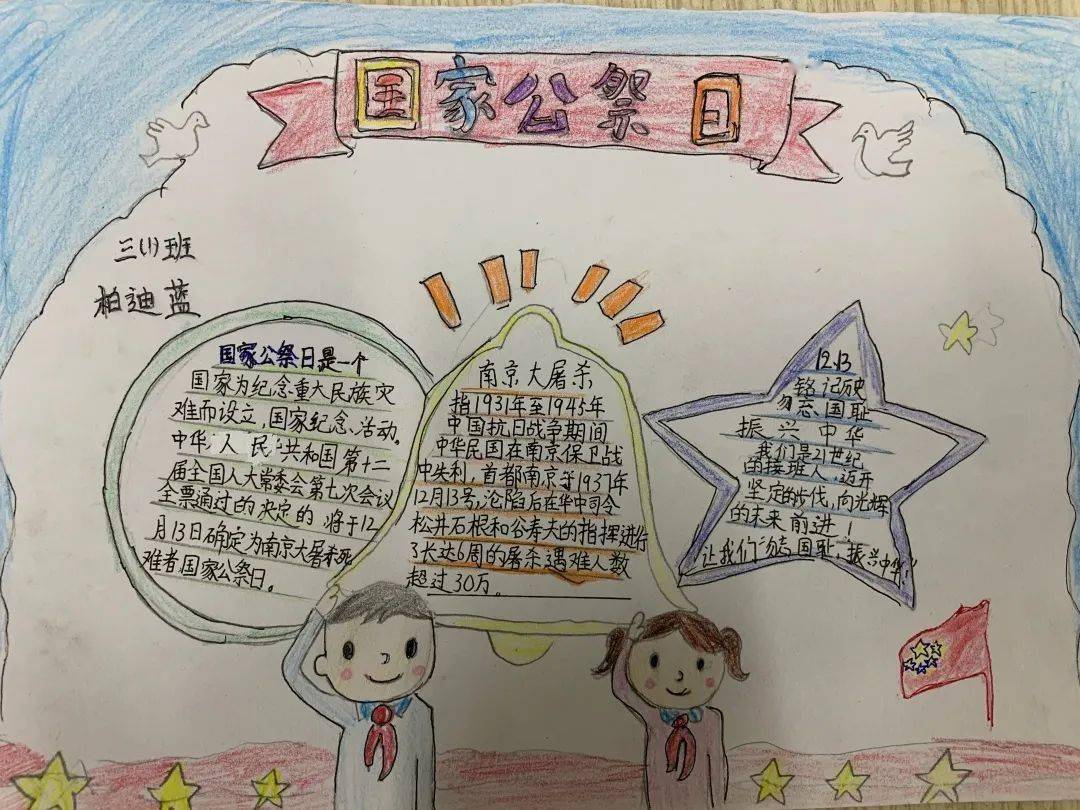 国家公祭日
三(1)班
柏迪蓝
国家公祭日是一个
国家为纪念重大民族灾
难而设立,国家纪念、活动。
中华人民共和国第十二
届全国人大常委会第七次会议
全票通过的决定的将于12
月13日确定为南京大屠杀死
难者国家公祭日。
南京大屠杀
指1931年至1945年
中国抗日战争期间
中华民国在南京保卫战
中失利,首都南京于1937年
12月13号,沦陷后在华中司令
松井石根和谷寿夫的指挥进行
了长达6周的屠杀遇难人数
超过30万。
12.13
铭记历史
勿忘国耻
振兴中华
我们是21世纪
的接班人,迈开
坚定的步伐,向光辉
的未来前进!
让我们勿忘国耻,振兴中华!